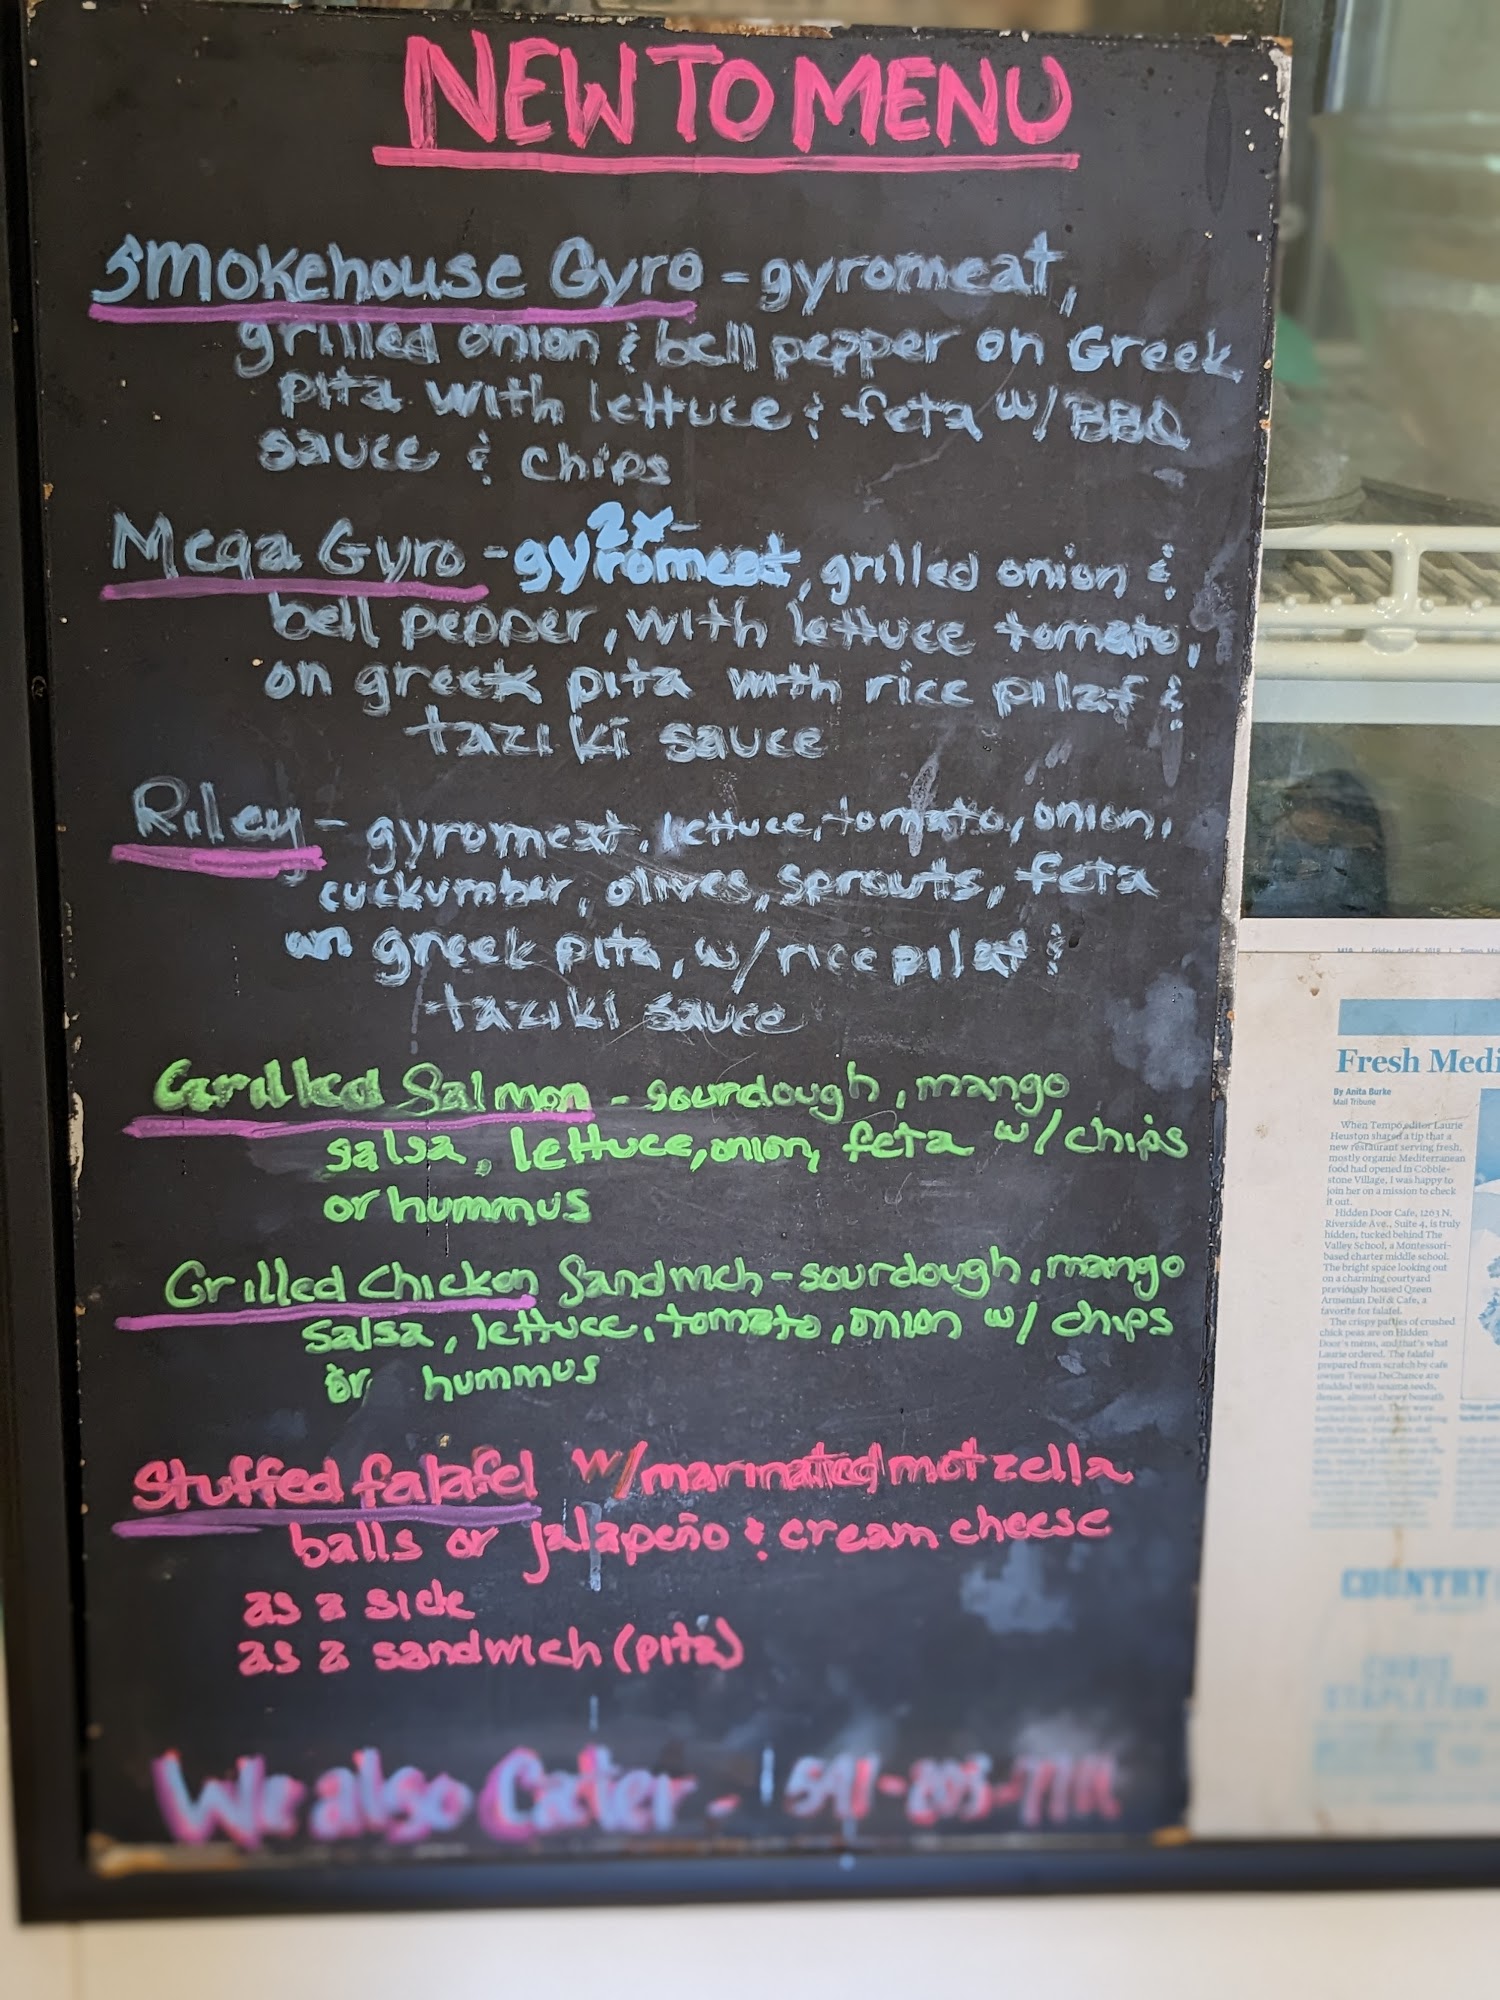 NEW TO MENU
Smokehouse Gyro - gyromeat,
grilled onion & bell pepper on Greek
pita with lettuce & feta w/ BBQ
sauce & chips
2x
Mega Gyro - gyromeat, grilled onion &
bell pepper, with lettuce tomato,
on greek pita with rice pilaf &
taziki sauce
Riley - gyromeat, lettuce, tomato, onion,
cuckumber, olives, sprouts, feta
on greek pita, w/ rice pilaf &
taziki sauce
Grilled Salmon - sourdough, mango
salsa, lettuce, onion, feta w/ chips
or hummus
Grilled Chicken Sandwich - sourdough, mango
salsa, lettuce, tomato, onion w/ chips
or hummus
Stuffed falafel w/ marinated motzella
balls or jalapeño & cream cheese
as a side
as a sandwich (pita)
We also Cater - 541-
Friday, April 6, 2018 | Tempo
Fresh Medi
By Anita Burke
Mail Tribune
When Tempo editor Laurie
Heuston shared a tip that a
new restaurant serving fresh,
mostly organic Mediterranean
food had opened in Cobble-
stone Village, I was happy to
join her on a mission to check
it out.
Hidden Door Cafe, 1263 N.
Riverside Ave., Suite 4, is truly
hidden, tucked behind The
Valley School, a Montessori-
based charter middle school.
The bright space looking out
on a charming courtyard
previously housed Qreen
Armenian Deli & Cafe, a
favorite for falafel.
The crispy patties of crushed
chick peas are on Hidden
Door's menu, and that's what
Laurie ordered. The falafel
prepared from scratch by cafe
owner Teresa DeChance are
studded with sesame seeds,
COUNTRY
CHRIS
STAPLETON